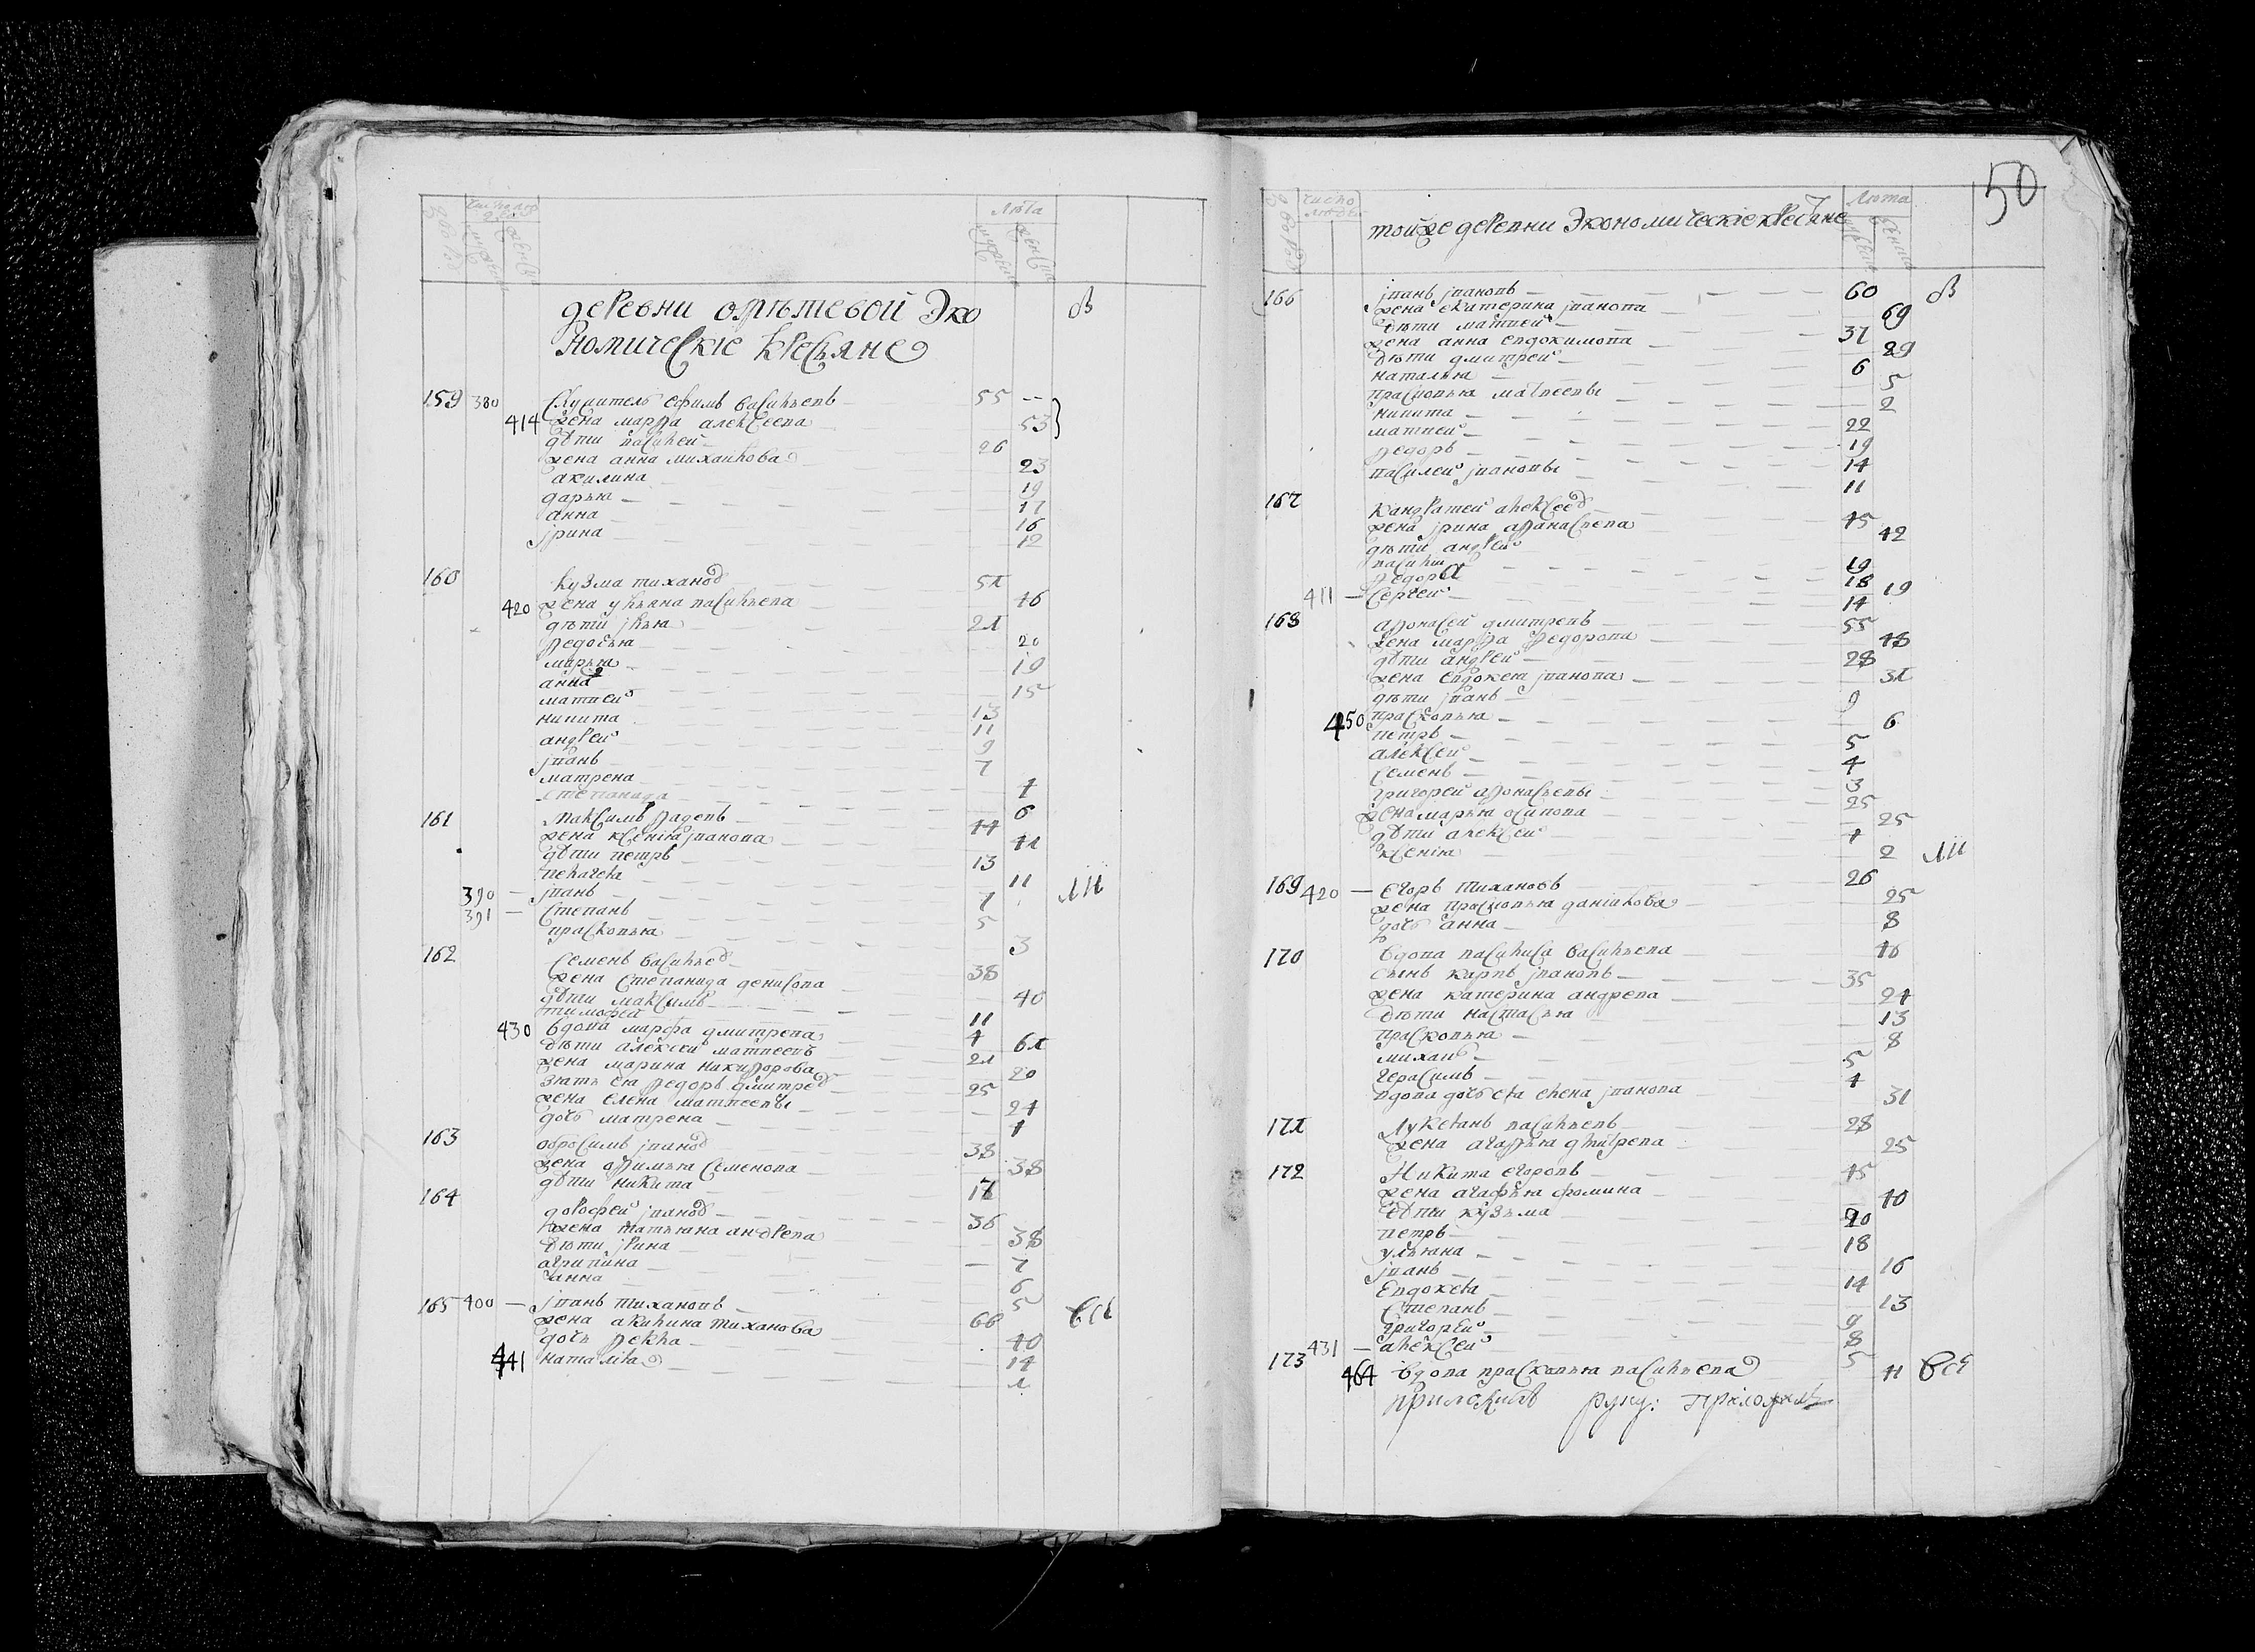 Лѣта
деревни
Экономическіе кресьяне
159 380 Служитель Ефимъ Васильевъ 55
414 жена марѳа алексеева 53
дѣти василей 26
жена анна михаилова 23
акилина 19
дарья 17
анна 16
ірина 12
160 кузма тихано 51
420 жена ульяна васильева 46
дѣти илья 21
ѳедосья 20
марья 19
анна 15
матвей 13
никита 11
андрей 9
іванъ 7
матрена
степанида 6
161 Максимъ ѳадевъ 44
жена ксенія іванова 41
дѣти петръ 13
пелагея 11
390 іванъ 7
391 степанъ 5
прасковья 3
162 Семенъ василье 38
жена степанида денисова 40
дѣти максимъ 11
тимофей 4
430 вдова марфа дмитрева 61
дѣти алексей матвеевъ 21
жена марина никиѳорова 20
зять ея ѳедоръ дмитре 25
жена елена матвеевы 24
дочь матрена 4
163 обросимъ івано 38
жена оѳимья семенова 38
дѣти никита
164 дорофей івано 36
жена татьяна андрева 38
дѣти ірина 7
агрипина 6
анна 5
165 400 іванъ тихановъ 66
жена акилина тиханова 40
дочь ѳекла 14
441 наталія 1
50
число людей
тойже деревни Экономическіе крестяне
Лѣта
166 іванъ івановъ 60
жена екатерина іванова 69
дѣти матвей 37
жена анна евдокимова 39
дѣти дмитрей 6
наталья 5
прасковья матвеевы 2
никита 22
матвей 19
ѳедоръ 14
василей івановы 11
167 кандратей алексее 45
жена ірина аѳанасьева 42
дѣти андрей 19
василей 18
ѳедора 19
411 сергей 14
168 аѳонасей дмитревъ 55
жена марѳа ѳедорова 48
дѣти андрей 28
жена евдокея іванова 31
дѣти іванъ 9
450 прасковья 6
петръ 5
алексей 4
семенъ 3
григорей аѳонасьевы 25
жена марья осипова 25
дѣти алексей 4
ксенія 2
169 420 егоръ тихановъ 26
жена прасковья данилова 25
дочь анна 8
170 вдова василиса васильева
сынъ карпъ івановъ 35
жена катерина андрева 24
дѣти настасья 13
прасковья 8
михаил 5
герасимъ 4
вдова дочь ея елена іванова 31
171 лукеянъ васильевъ 28
жена агаѳья дмитрева 25
172 Никита егоровъ 45
жена агафья фомина 40
дѣти кузьма 20
петръ 18
ульяна 16
іванъ 14
евдокея 13
степанъ 9
григорей 8
431 алексей 5
173 464 вдова прасковья васильева
приложилъ руку: приложилъ